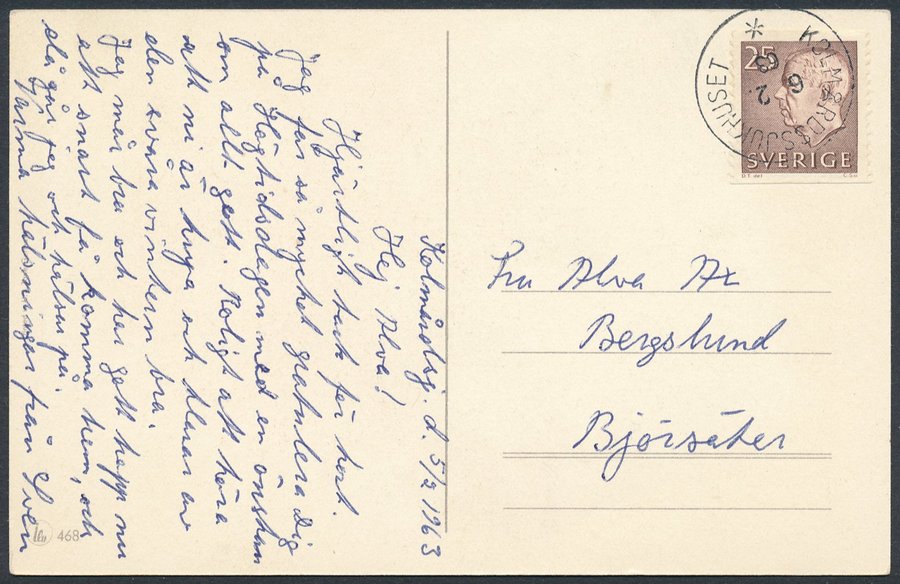 Kolmårdsj. d. 5/2 1963
Hej Alva!
Hjärtligt tack för kort.
Jag får så mycket gratulera Dig
på Högtidsdagen med en önskan
om allt gott. Roligt att höra
att ni är krya och klarar av
den svåra vintern bra.
Jag mår bra och har gott hopp nu
att snart få komma hem, och
då går jag och hälsar på.
Varma hälsningar från Sven
468
25
SVERIGE
KOLMÅRDSSJUKHUSET
6 2 63
Fru Alva Ax
Bergslund
Björsäter